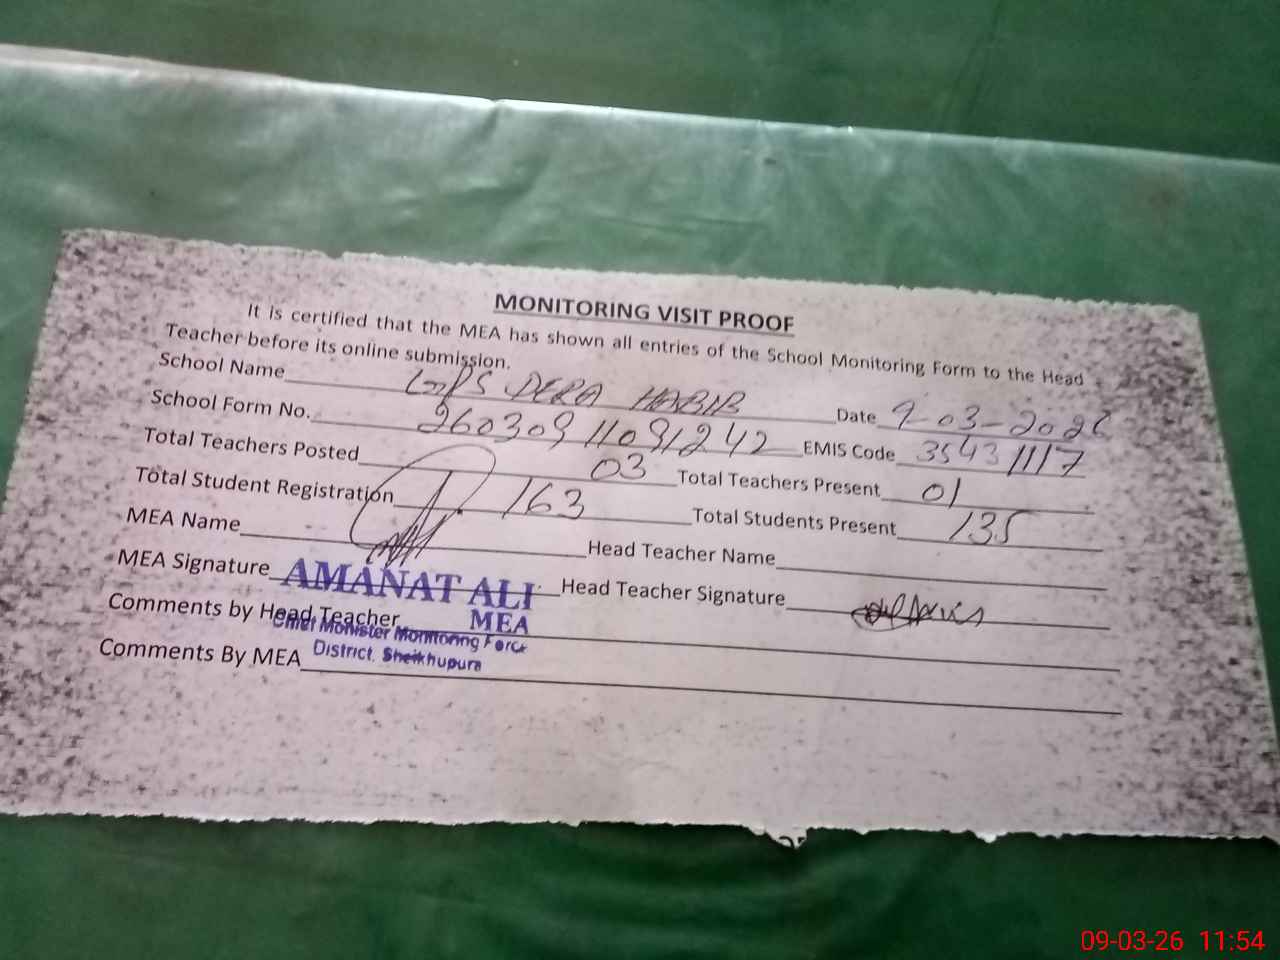 MONITORING VISIT PROOF
It is certified that the MEA has shown all entries of the School Monitoring Form to the Head
Teacher before its online submission.
School Name DERA HABIB Date 9-03-2026
School Form No. 26030911091242 EMIS Code 35431117
Total Teachers Posted 03 Total Teachers Present 01
Total Student Registration 163 Total Students Present 135
MEA Name Head Teacher Name
MEA Signature AMANAT ALI Head Teacher Signature
MEA
Comments by Head Teacher
Chief Monister Monitoring Force
Comments By MEA District. Sheikhupura
09-03-26 11:54